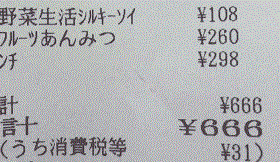 野菜生活シルキーソイ ¥108
フルーツあんみつ ¥260
ンチ ¥298
計 ¥666
計 ¥666
(うち消費税等 ¥31)